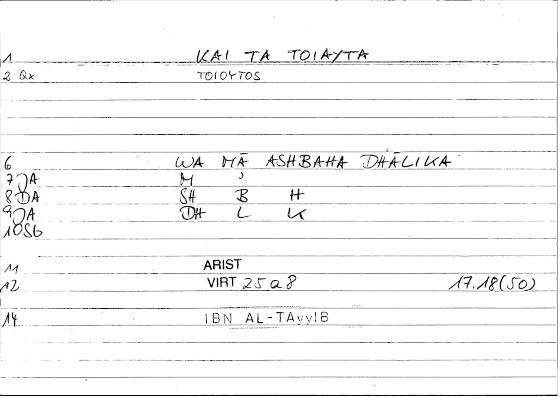 1 KAI TA TOIAYTA
2 Qx TOIOYTOS
6 WA MĀ ASHBAHA DHĀLIKA
7 JA M '
8 JA SH B H
9 JA DH L K
10 SG
11 ARIST
12 VIRT 25a8 17.18(50)
14 IBN AL-TAyyIB